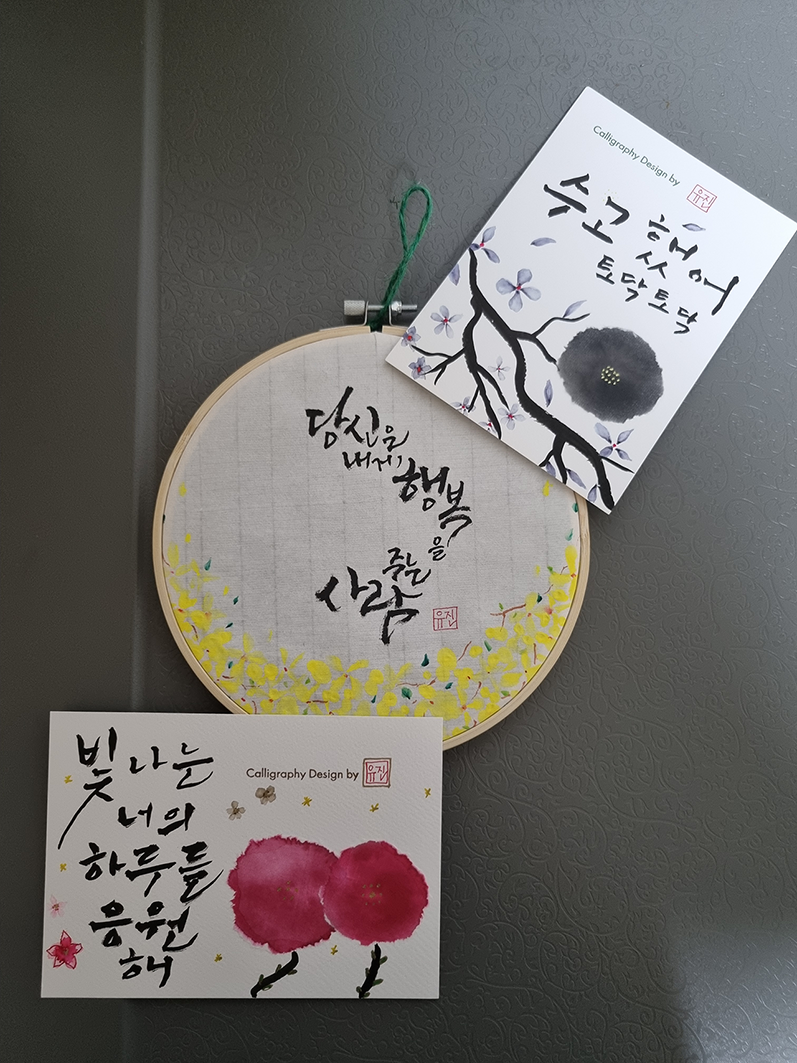 Calligraphy Design by 유진
수고했어
토닥토닥
당신은
내게
행복을
주는
사람
유진
빛나는
너의
하루를
응원
해
Calligraphy Design by 유진